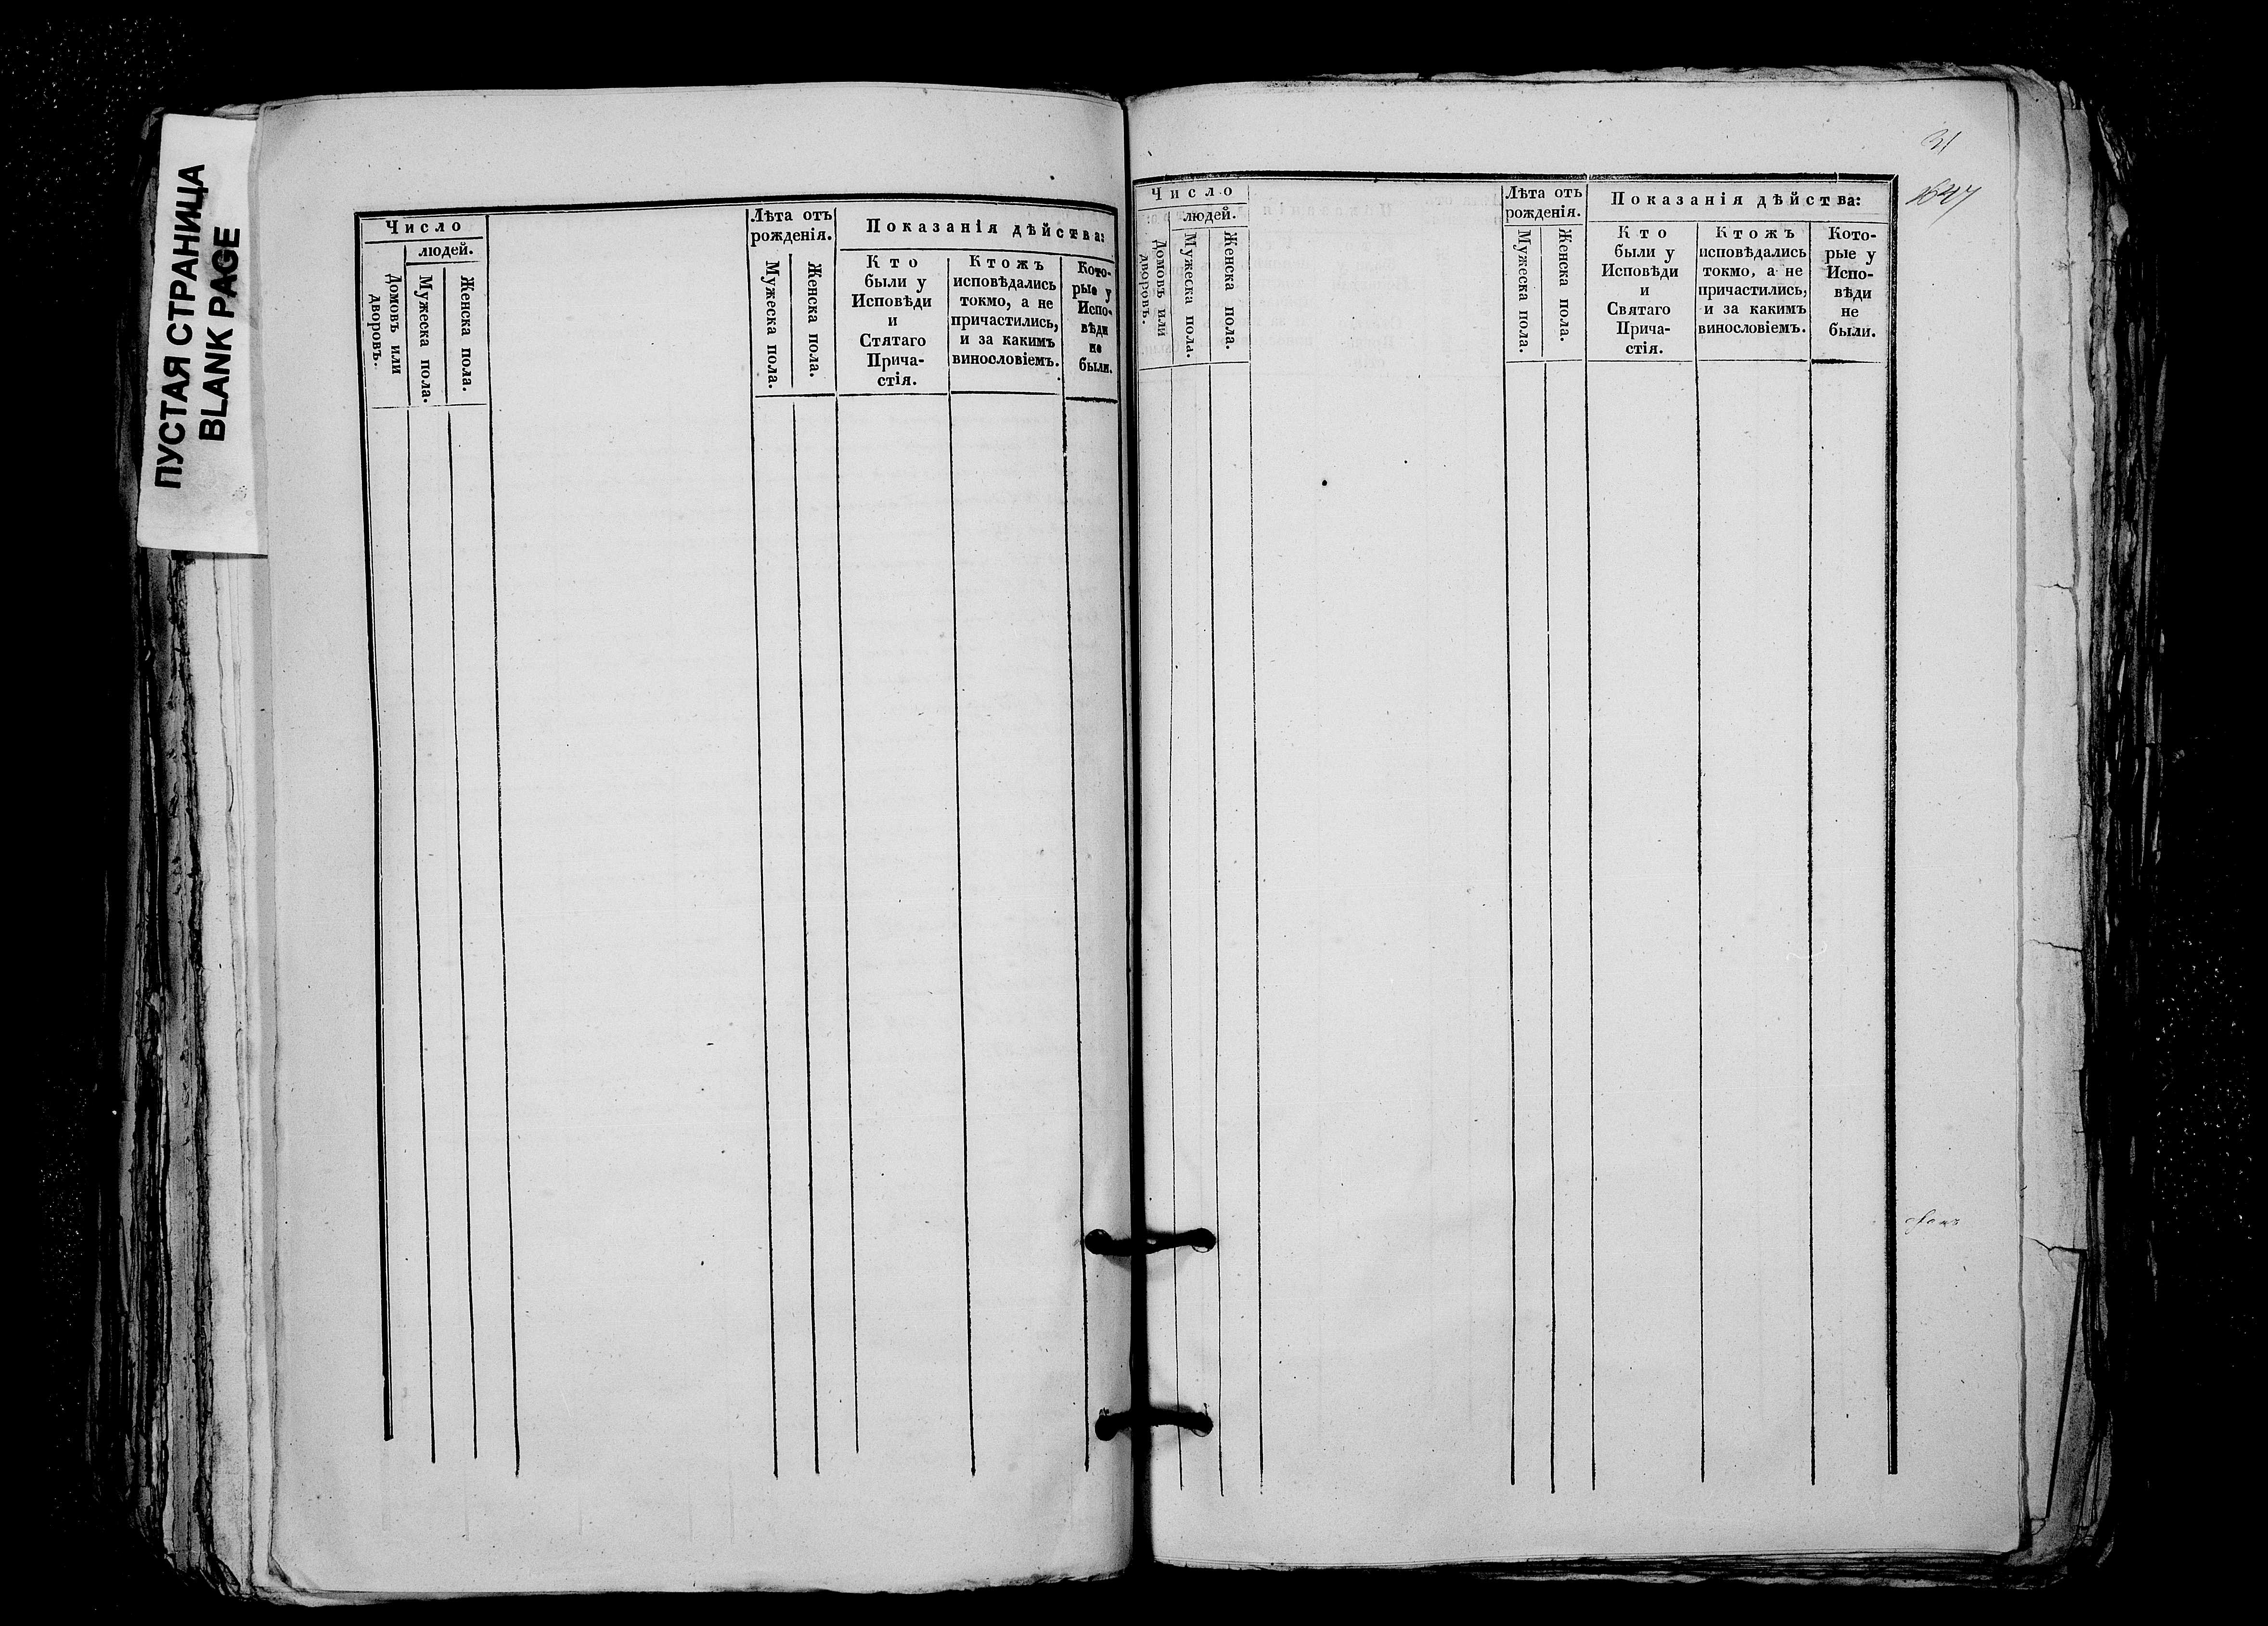 ПУСТАЯ СТРАНИЦА
BLANK PAGE
Число
людей.
Домовъ или дворовъ.
Мужеска пола.
Женска пола.
Лѣта отъ
рожденія.
Мужеска пола.
Женска пола.
Показанія дѣйства:
Кто
были у
Исповѣди
и
Стятаго
Прича-
стія.
Ктожъ
исповѣдались
токмо, а не
причастились,
и за какимъ
винословіемъ.
Кото-
рые у
Испо-
вѣди
не
были.
31
Число
людей.
Домовъ или дворовъ.
Мужеска пола.
Женска пола.
Лѣта отъ
рожденія.
Мужеска пола.
Женска пола.
Показанія дѣйства:
Кто
были у
Исповѣди
и
Святаго
Прича-
стія.
Ктожъ
исповѣдались
токмо, а не
причастились,
и за какимъ
винословіемъ.
Кото-
рые у
Испо-
вѣди
не
были.